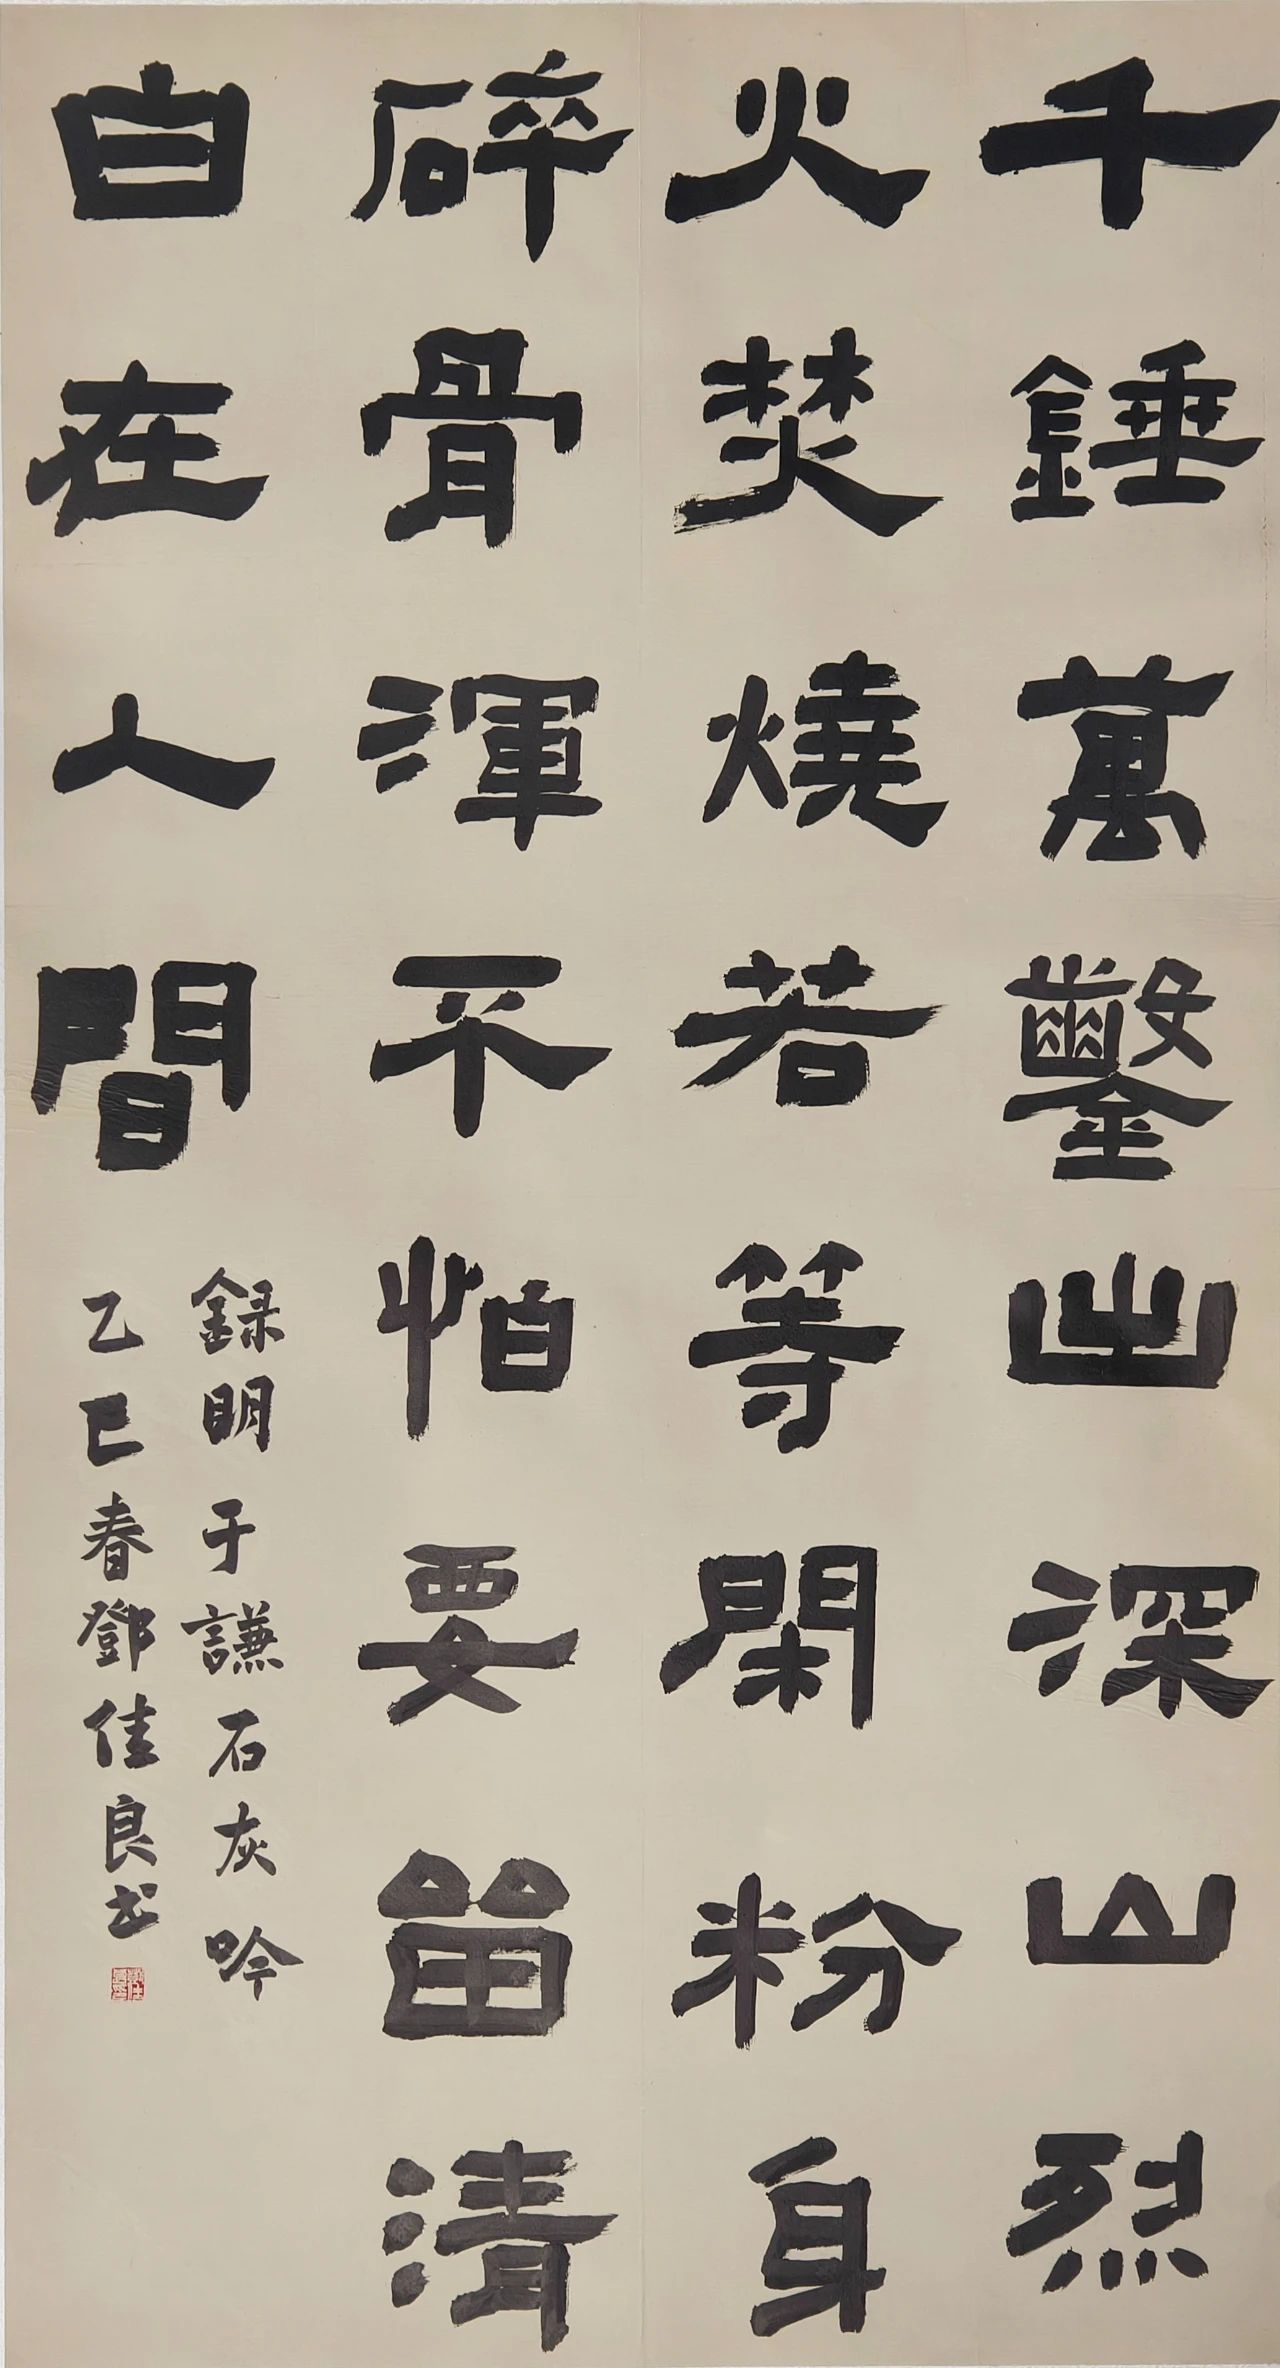 千錘萬鑿出深山烈
火焚燒若等閑粉身
碎骨渾不怕要留清
白在人間
録明于謙石灰吟
乙巳春鄧佳良书